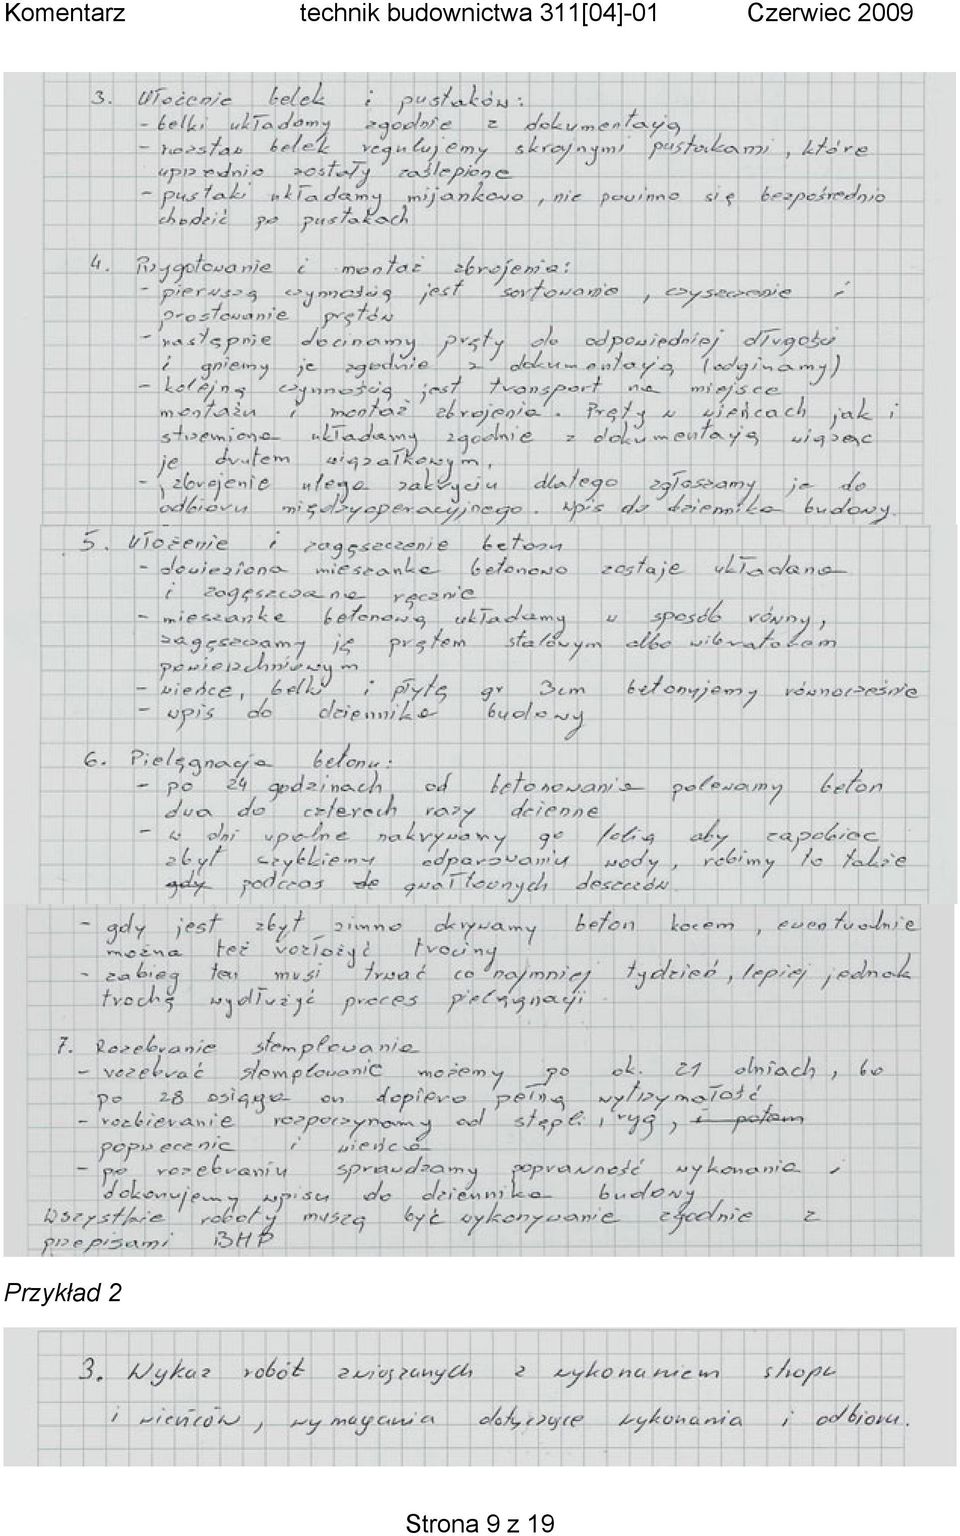 Komentarz technik budownictwa 311[04]-01 Czerwiec 2009
3. Ułożenie belek i pustaków:
- belki układamy zgodnie z dokumentacją
- rozstaw belek regulujemy skrajnymi pustakami, które
uprzednio zostały zaślepione
- pustaki układamy mijankowo, nie powinno się bezpośrednio
chodzić po pustakach
4. Przygotowanie i montaż zbrojenia:
- pierwszą czynnością jest sortowanie, czyszczenie i
prostowanie prętów
- następnie docinamy pręty do odpowiedniej długości
i gniemy je zgodnie z dokumentacją (odginamy)
- kolejną czynnością jest transport na miejsce
montażu i montaż zbrojenia. Pręty w wieńcach jak i
strzemiona układamy zgodnie z dokumentacją wiążąc
je drutem wiązałkowym,
- zbrojenie ulega zakryciu dlatego zgłaszamy je do
odbioru międzyoperacyjnego. Wpis do dziennika budowy.
5. Ułożenie i zagęszczenie betonu
- dowieziona mieszanka betonowa zostaje układana
i zagęszczana ręcznie
- mieszankę betonową układamy w sposób równy,
zagęszczamy ją prętem stalowym albo wibratorem
powierzchniowym
- wieńce, belki i płytę gr 3cm betonujemy równocześnie
- wpis do dziennika budowy
6. Pielęgnacja betonu:
- po 24 godzinach od betonowania polewamy beton
dwa do czterech razy dzienne
- w dni upalne nakrywamy go folią aby zapobiec
zbyt szybkiemu odparowaniu wody, robimy to także
gdy podczas de gwałtownych deszczów
- gdy jest zbyt zimno okrywamy beton kocem, ewentualnie
można też rozłożyć trociny
- zabieg ten musi trwać co najmniej tydzień, lepiej jednak
trochę wydłużyć proces pielęgnacji
7. Rozebranie stemplowania
- rozebrać stemplowanie możemy po ok. 21 dniach, bo
po 28 osiąga on dopiero pełną wytrzymałość
- rozbieranie rozpoczynamy od stępli, ryg, i potem
poprzecznic i wieńca
- po rozebraniu sprawdzamy poprawność wykonania i
dokonujemy wpisu do dziennika budowy
Wszystkie roboty muszą być wykonywanie zgodnie z
przepisami BHP
Przykład 2
3. Wykaz robót związanych z wykonaniem stropu
i wieńców, wymagania dotyczące wykonania i odbioru.
Strona 9 z 19